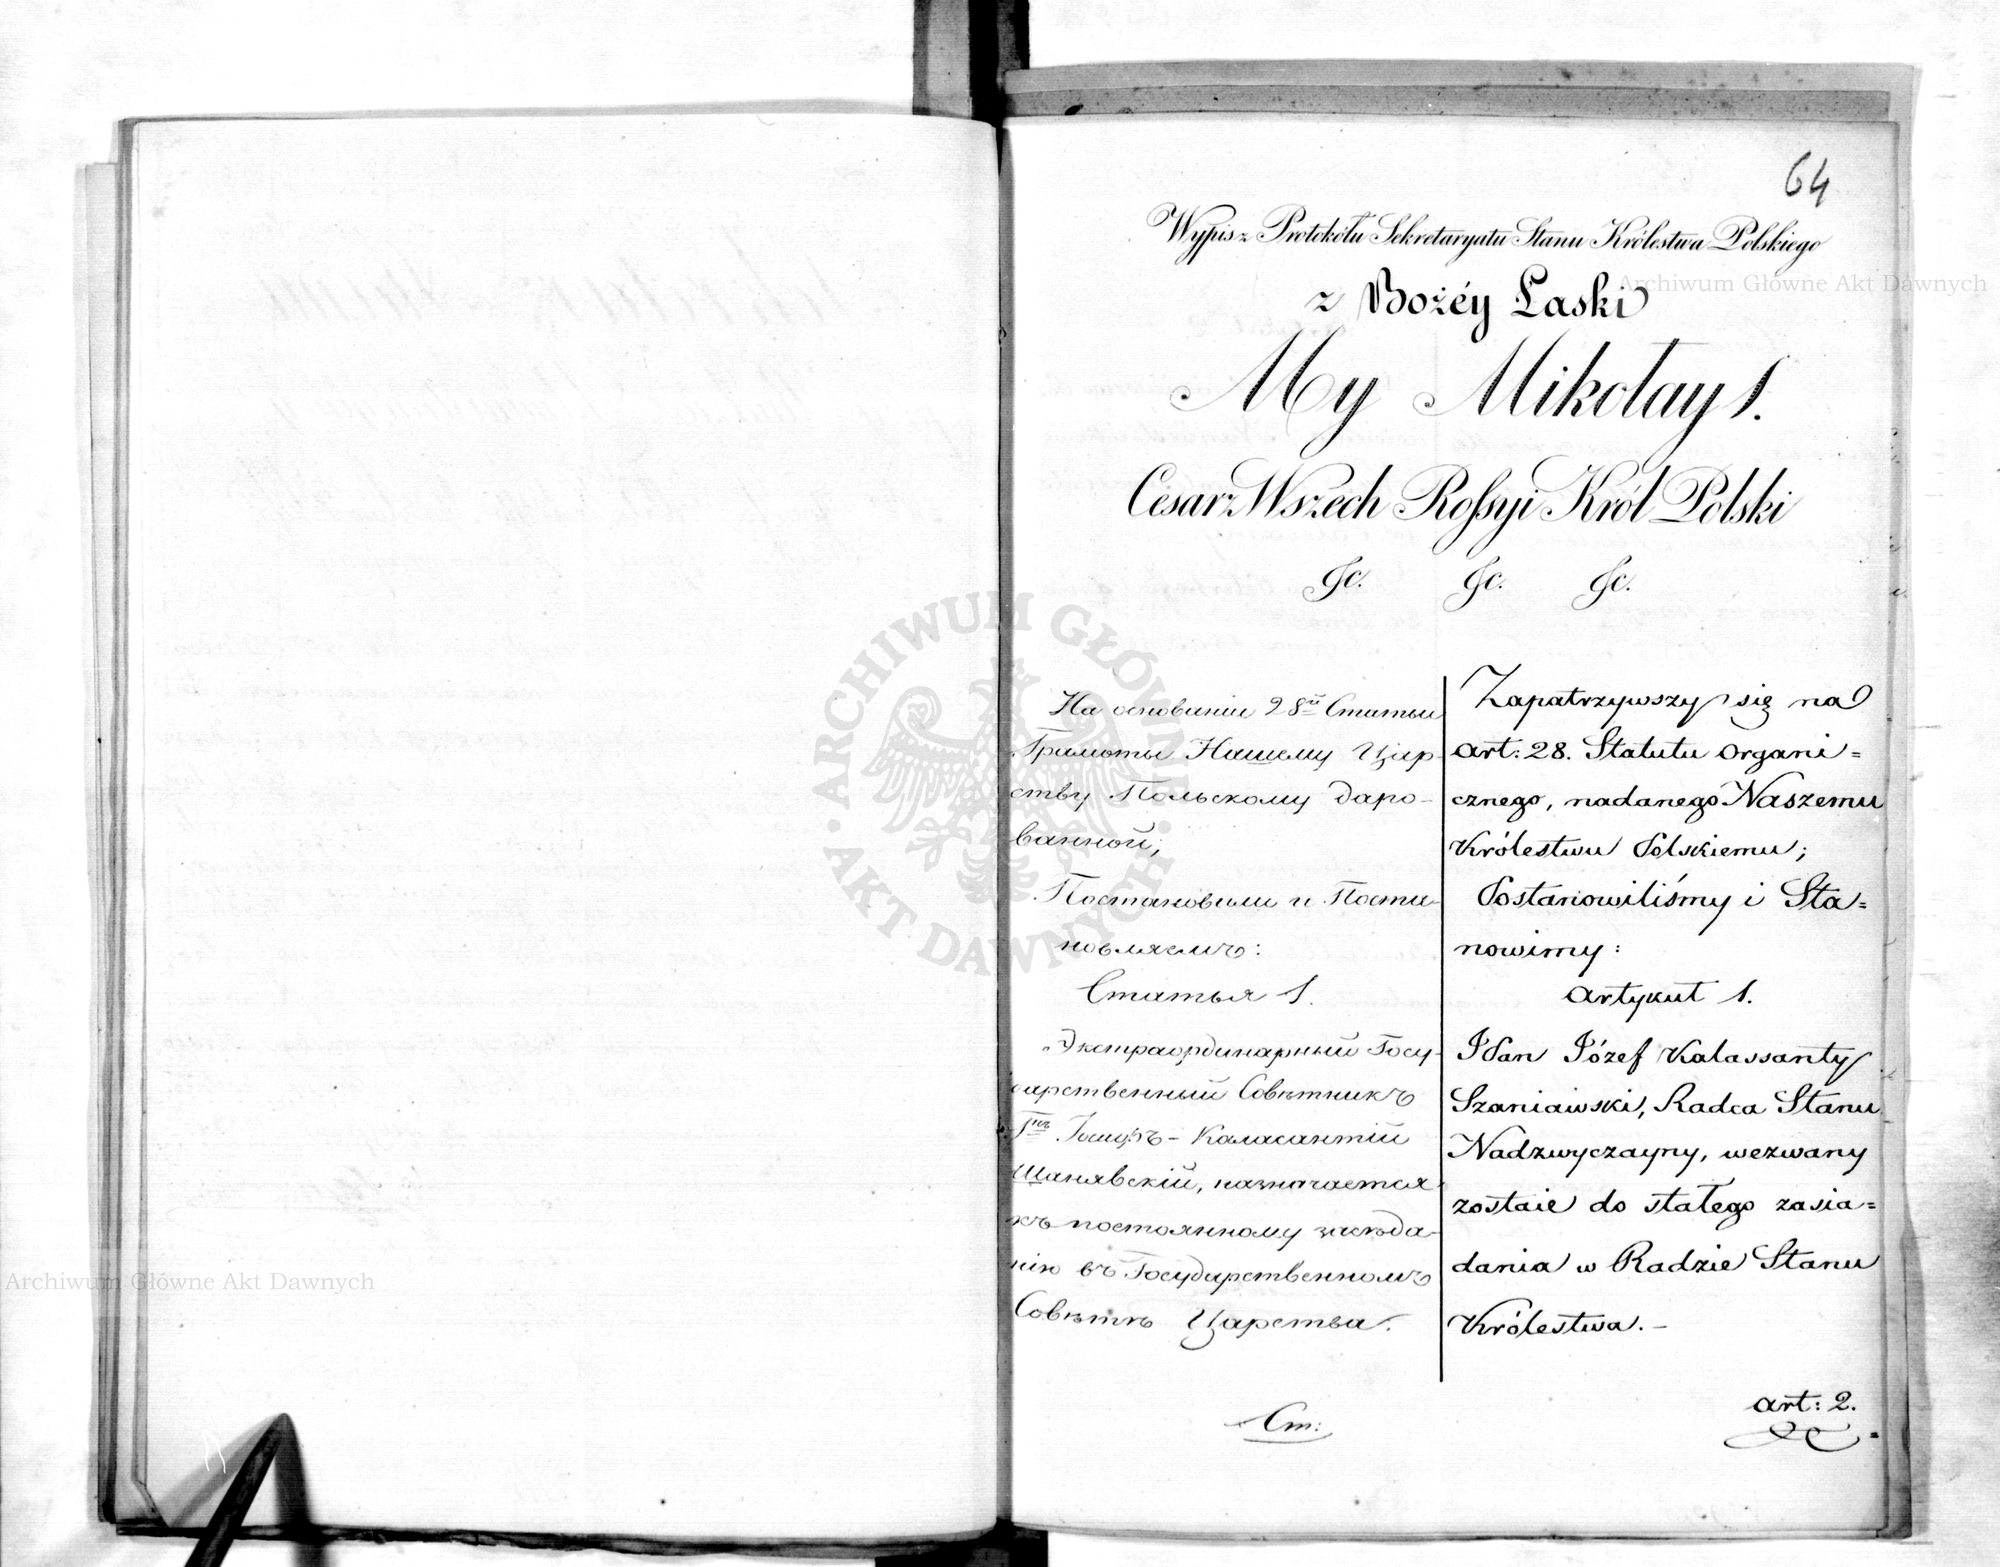 64
Wypis z Protokółu Sekretaryatu Stanu Królestwa Polskiego
z Bożéy Łaski
My Mikołay I.
Cesarz Wszech Rossyi Król Polski
&c. &c. &c.
На основаніи 28й Статьи
Грамоты Нашему Цар-
ству Польскому даро-
ванной;
Постановили и Поста-
новляемъ:
Статья 1.
Экстраординарный Госу-
дарственный Совѣтникъ
Гнъ Іосифъ-Каласантій
Шанявскій, назначается
къ постоянному засѣда-
нію въ Государственномъ
Совѣтѣ Царства.
Ст:
Zapatrzywszy się na
art: 28. Statutu Organi=
cznego, nadanego Naszemu
Królestwu Polskiemu;
Postanowiliśmy i Sta=
nowimy:
Artykuł 1.
JPan Józef Kalassanty
Szaniawski, Radca Stanu
Nadzwyczayny, wezwany
zostaie do stałego zasia=
dania w Radzie Stanu
Królestwa.–
art: 2.
Archiwum Główne Akt Dawnych
ARCHIWUM GŁÓWNE AKT DAWNYCH
Archiwum Główne Akt Dawnych